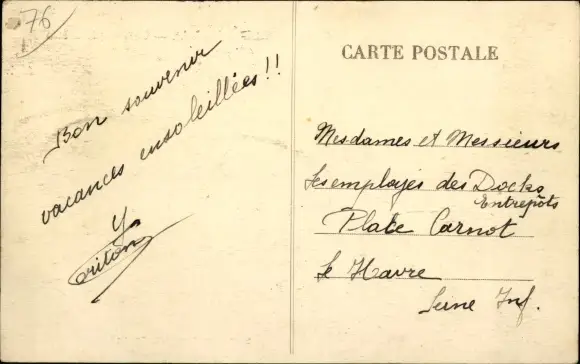 76
Bon souvenir
vacances ensoleillées!!
CARTE POSTALE
Mesdames et Messieurs
Les employés des Docks
Entrepôts
Place Carnot
Le Havre
Seine Inf.